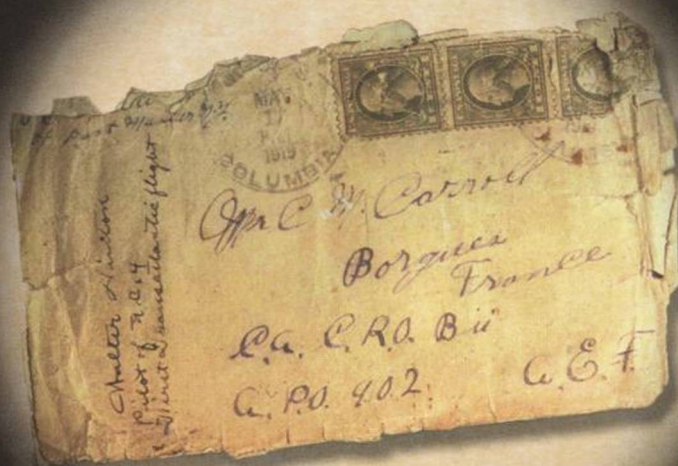 MAY
17
1919
COLUMBIA
Walter Hinton
Pilot of N.C.4
First Transatlantic flight
C. M. Carroll
Borgues
France
C.a. C.R.O. B
A.P.O. 902.
A. E. F.